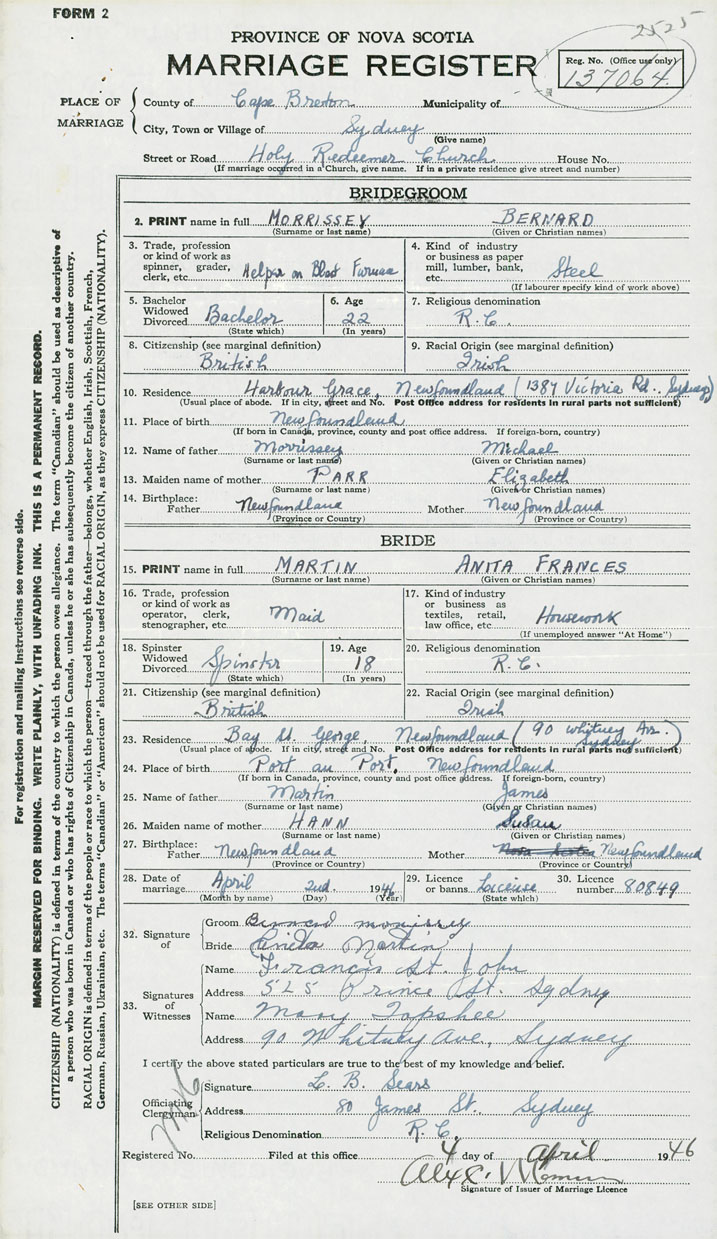 FORM 2
2525
PROVINCE OF NOVA SCOTIA
MARRIAGE REGISTER
Reg. No. (Office use only)
137064
PLACE OF MARRIAGE
County of Cape Breton Municipality of
City, Town or Village of Sydney
(Give name)
Street or Road Holy Redeemer Church House No.
(If marriage occurred in a Church, give name. If in a private residence give street and number)
BRIDEGROOM
2. PRINT name in full MORRISSEY BERNARD
(Surname or last name) (Given or Christian names)
3. Trade, profession or kind of work as spinner, grader, clerk, etc. Helper on Blast Furnace
4. Kind of industry or business as paper mill, lumber, bank, etc. Steel
(If labourer specify kind of work above)
5. Bachelor Widowed Divorced Bachelor
(State which)
6. Age 22
(In years)
7. Religious denomination R.C.
8. Citizenship (see marginal definition) British
9. Racial Origin (see marginal definition) Irish
10. Residence Harbour Grace, Newfoundland (1387 Victoria Rd. Sydney)
(Usual place of abode. If in city, street and No. Post Office address for residents in rural parts not sufficient)
11. Place of birth Newfoundland
(If born in Canada, province, county and post office address. If foreign-born, country)
12. Name of father Morrissey Michael
(Surname or last name) (Given or Christian names)
13. Maiden name of mother PARR Elizabeth
(Surname or last name) (Given or Christian names)
14. Birthplace: Father Newfoundland Mother Newfoundland
(Province or Country) (Province or Country)
BRIDE
15. PRINT name in full MARTIN ANITA FRANCES
(Surname or last name) (Given or Christian names)
16. Trade, profession or kind of work as operator, clerk, stenographer, etc. Maid
17. Kind of industry or business as textiles, retail, law office, etc. Housework
(If unemployed answer "At Home")
18. Spinster Widowed Divorced Spinster
(State which)
19. Age 18
(In years)
20. Religious denomination R.C.
21. Citizenship (see marginal definition) British
22. Racial Origin (see marginal definition) Irish
23. Residence Bay St. George, Newfoundland (90 Whitney Av. Sydney)
(Usual place of abode. If in city, street and No. Post Office address for residents in rural parts not sufficient)
24. Place of birth Port au Port, Newfoundland
(If born in Canada, province, county and post office address. If foreign-born, country)
25. Name of father Martin James
(Surname or last name) (Given or Christian names)
26. Maiden name of mother HANN Susan
(Surname or last name) (Given or Christian names)
27. Birthplace: Father Newfoundland Mother Nova Scotia Newfoundland
(Province or Country) (Province or Country)
28. Date of marriage April 2nd 1946
(Month by name) (Day) (Year)
29. Licence or banns License
(State which)
30. Licence number 80849
32. Signature of
Groom Bernard Morrissey
Bride Anita Martin
33. Signatures of Witnesses
Name Francis St. John
Address 525 Prince St. Sydney
Name Mary Topshee
Address 90 Whitney Ave., Sydney
I certify the above stated particulars are true to the best of my knowledge and belief.
Officiating Clergyman
Signature L. B. Sears
Address 80 James St., Sydney
Religious Denomination R.C.
Registered No. Filed at this office 4 day of April 1946
Alex.
Signature of Issuer of Marriage Licence
[SEE OTHER SIDE]
For registration and mailing instructions see reverse side.
MARGIN RESERVED FOR BINDING. WRITE PLAINLY, WITH UNFADING INK. THIS IS A PERMANENT RECORD.
CITIZENSHIP (NATIONALITY) is defined in terms of the country to which the person owes allegiance. The term "Canadian" should be used as descriptive of
a person who was born in Canada or who has rights of Citizenship in Canada, unless he or she has subsequently become the citizen of another country.
RACIAL ORIGIN is defined in terms of the people or race to which the person—traced through the father—belongs, whether English, Irish, Scottish, French,
German, Russian, Ukrainian, etc. The terms "Canadian" or "American" should not be used for RACIAL ORIGIN, as they express CITIZENSHIP (NATIONALITY).